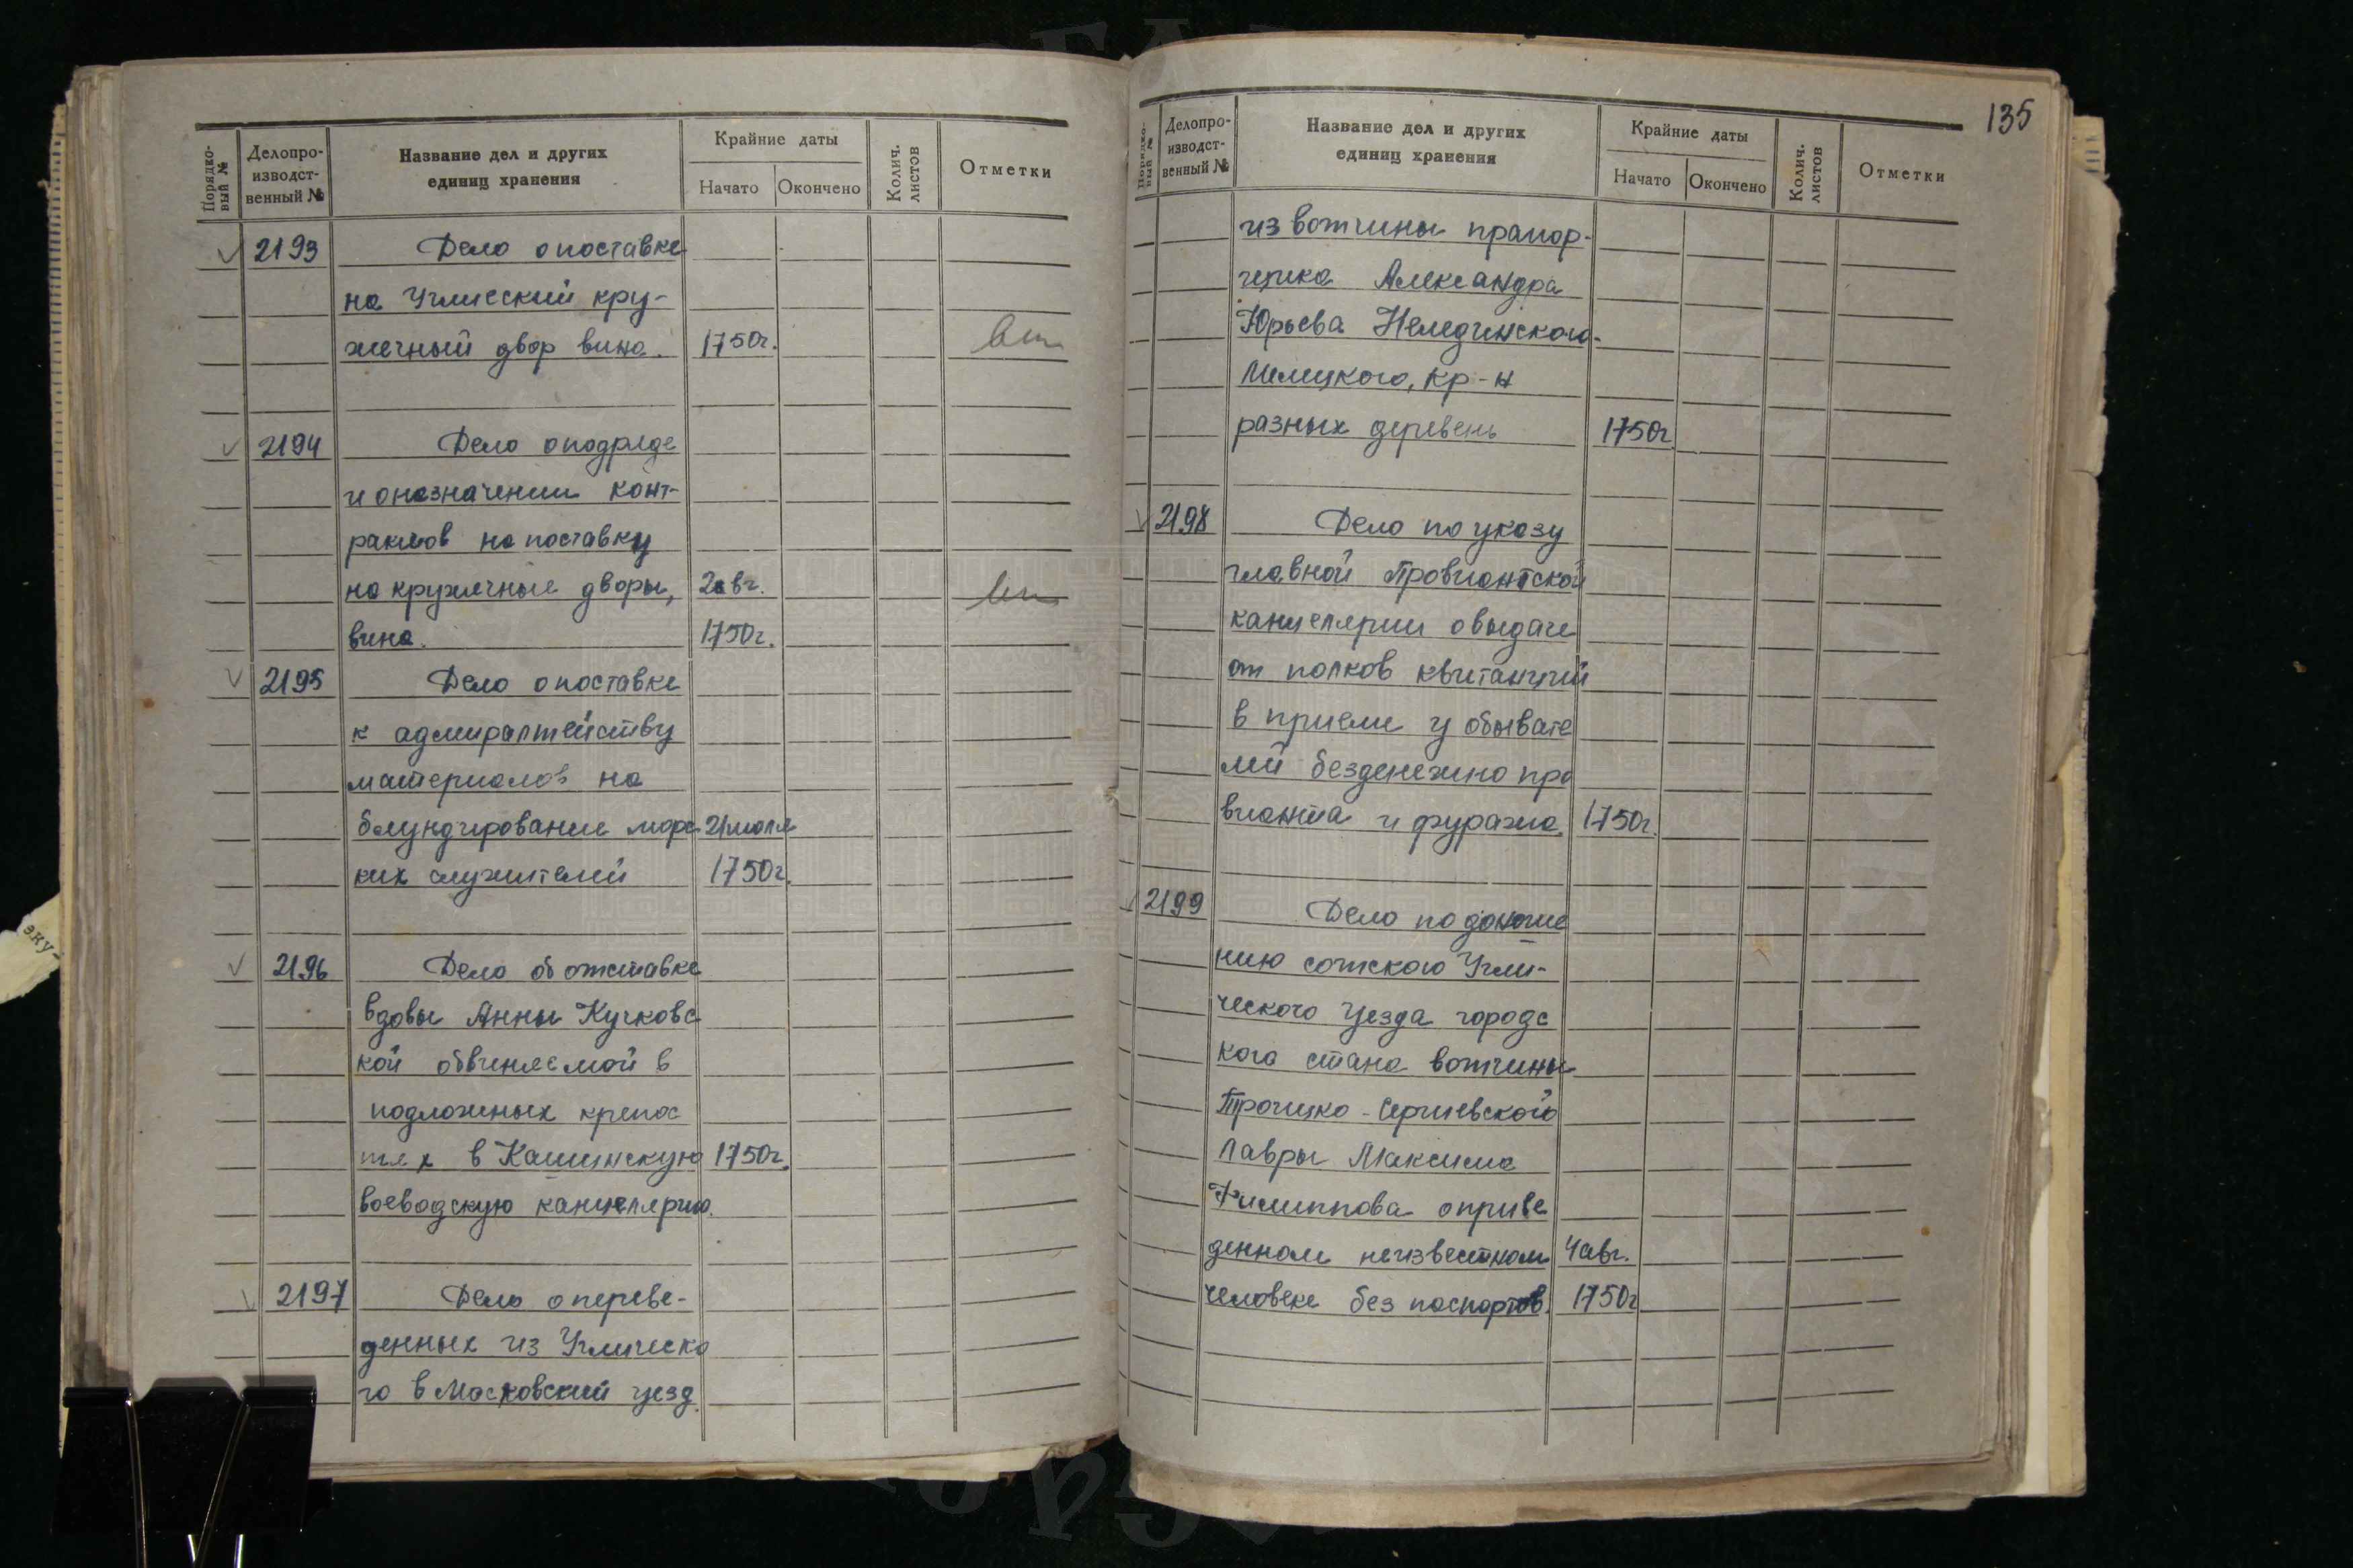 Порядко-
вый №
Делопро-
изводст-
венный №
Название дел и других
единиц хранения
Крайние даты
Начато
Окончено
Колич.
листов
Отметки
2193 Дело о поставке
на Углисский кру-
жечный двор вина. 1750г.
2194 Дело о подряде
и о назначении конт-
рактов на поставку
на кружечные дворы, 2 авг.
вина. 1750г.
2195 Дело о поставке
к адмиралтейству
материалов на
бмундирование морс 21 июля
ких служителей 1750г.
2196 Дело об отставке
вдовы Анны Кучковс
кой обвиняемой в
подложных крепос
тях в Кашинскую 1750г.
воеводскую канцелярию.
2197 Дело о переве-
денных из Углическо
го в Московский уезд.
135
Порядко-
вый №
Делопро-
изводст-
венный №
Название дел и других
единиц хранения
Крайние даты
Начато
Окончено
Колич.
листов
Отметки
из вотчины прапор-
щика Александра
Юрьева Неледчнского-
Мелецкого, кр-н
разных деревень 1750г
2198 Дело по указу
главной Провиантской
канцелярии о выдаче
от полков квитанций
в приеме у обывате
лей безденежно про
вианта и фуража. 1750г.
2199 Дело по доноше
нию сотского Угли-
ческого уезда городс
кого стана вотчины
Троицко-Сергиевской
Лавры Максима
Филиппова о приве
денном неизвестном 4 авг.
человеке без паспортов. 1750г
эку-